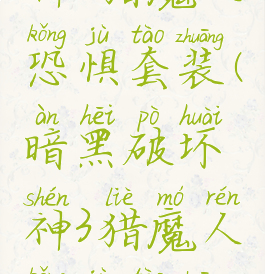 kǒng jù tào zhuāng
恐惧套装(
àn hēi pò huài
暗黑破坏
shén liè mó rén
神3猎魔人